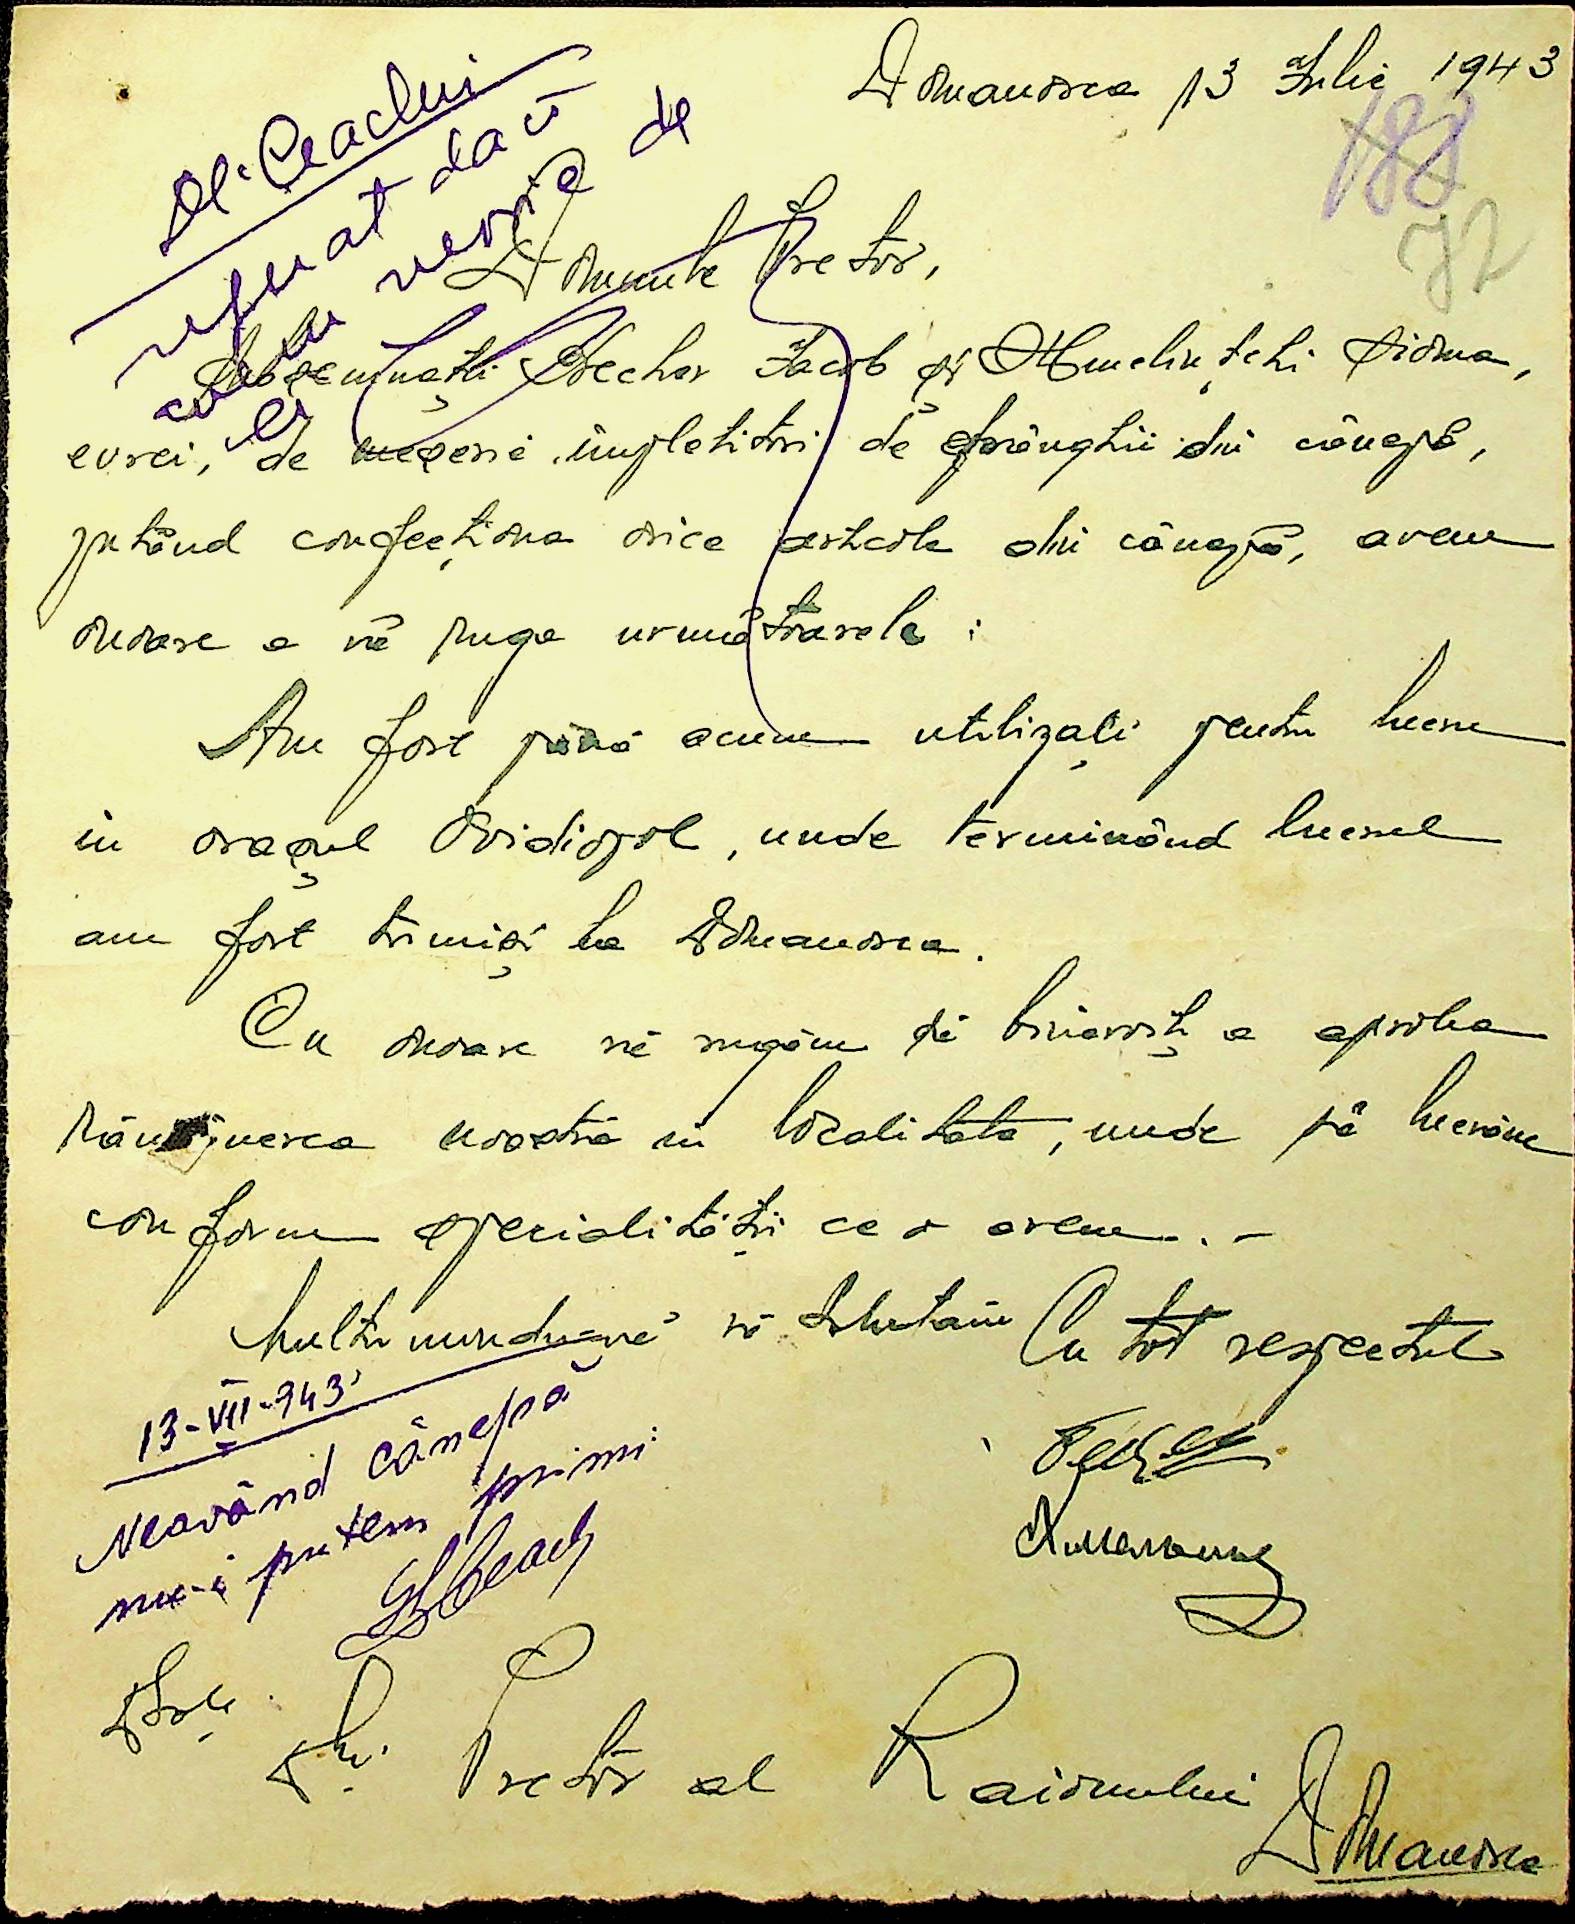 Domanovca 13 Iulie 1943
188
72
Dl. Ceaclui
referat dacă
are nevoie de
ei
Domnule Pretor,
Subsemnații Becher Iacob și Hmelnițchi Sioma,
evrei, de meserie împletitori de frânghii din cânepă,
putând confecționa orice articole din cânepă, avem
onoare a vă ruga următoarele :
Am fost până acum utilizați pentru lucru
în orașul Ovidiopol, unde terminând lucrul
am fost trimiși la Domanovca.
Cu onoare vă rugăm să binevoiți a aproba
rămânerea noastră în localitate, unde să lucrăm
conform specialității ce o avem. -
Multumindu-vă vă salutăm Cu tot respectul
13-VII-943
Neavând cânepă
nu-i putem primi
Dsale
Dlui Pretor al Raionului
Domanovca